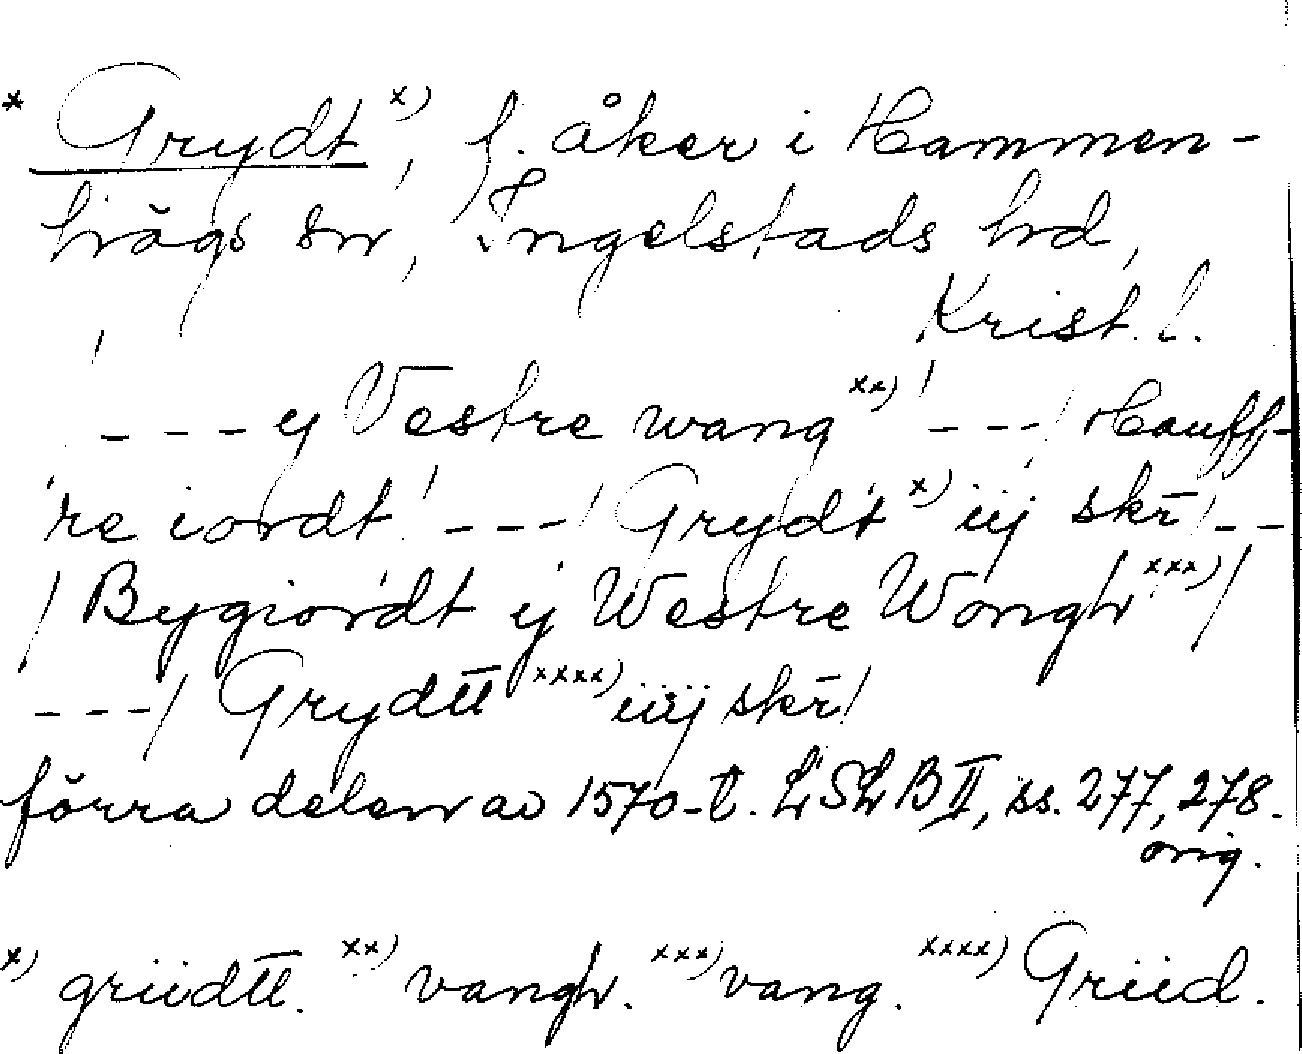 * Grydt x), f. åker i Hammen-
högs sn, Ingelstads hd,
Krist. l.
--- y Vestre wang xx) / --- / Hauff-
re iordt / --- / Grydt x) iij skr̄ / --
/ Bygiordt ij Westre Wongh xxx) /
--- / Grydtt xxxx) iiij skr̄ /
förra delen av 1570-t. LSLB II, ss. 277, 278.
orig.
x) griidtt. xx) vangh. xxx) vang. xxxx) Griid.